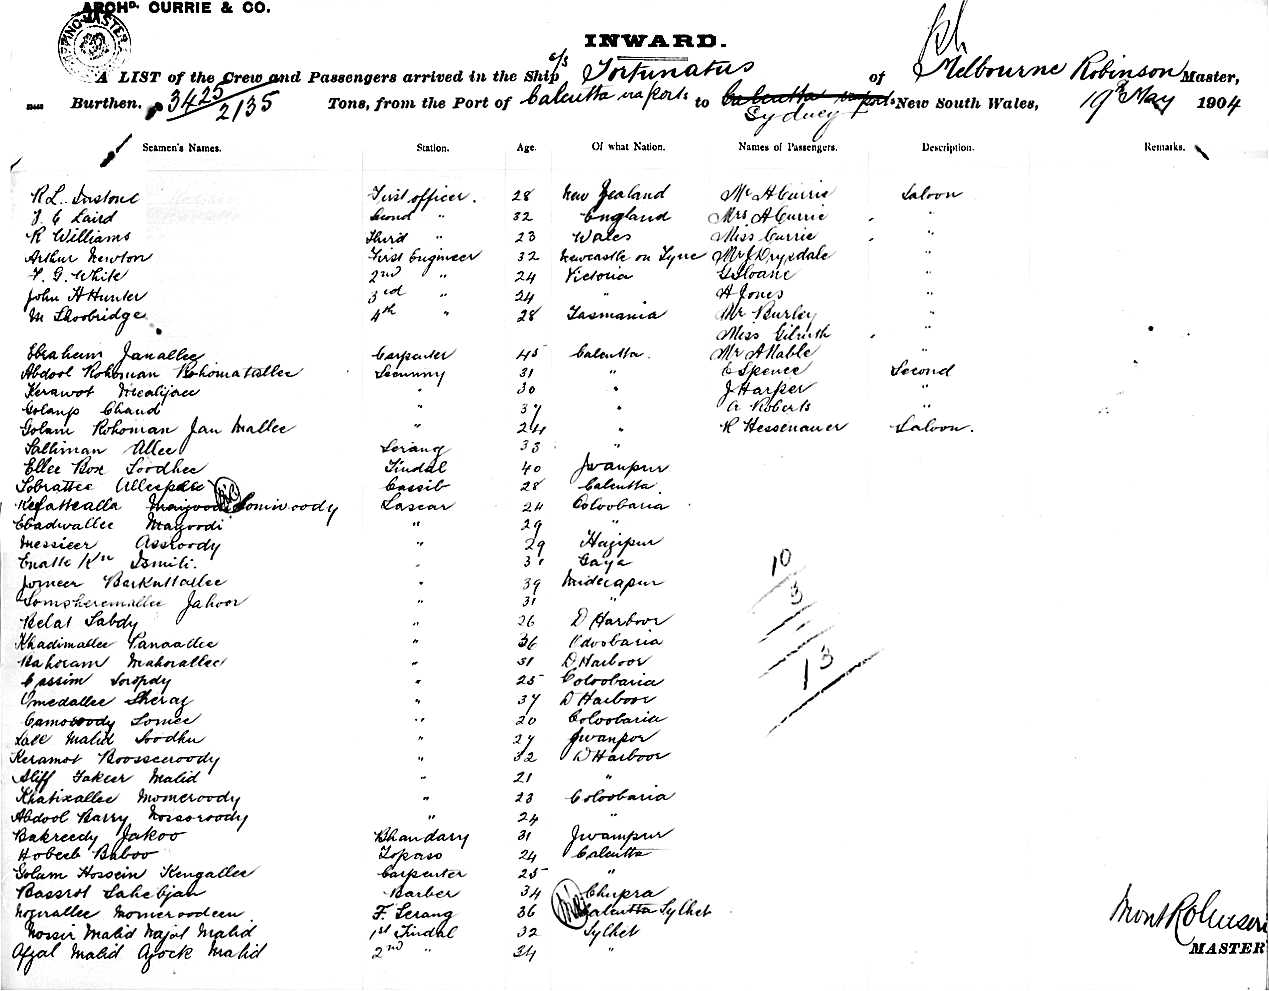 ARCHD. CURRIE & CO.
INWARD.
A LIST of the Crew and Passengers arrived in the Ship s/s Fortunatus of Melbourne Robinson Master,
Burthen. 3425/2135 Tons, from the Port of Calcutta via ports to Calcutta via ports Sydney New South Wales, 19th May 1904
Seamen's Names. Station. Age. Of what Nation. Names of Passengers. Description. Remarks.
R L First officer. 28 New Zealand Mr A Currie Saloon
Laird Second " 32 England Mrs A Currie "
R Williams Third " 23 Wales Miss Currie "
Arthur Newton First Engineer 32 Newcastle on Tyne Mr J Drysdale "
F. G. White 2nd " 24 Victoria G Sloane "
John A Hunter 3rd " 24 " A Jones "
M Skoobridge 4th " 28 Tasmania Mr Burley "
Miss Gilruth "
Ebrahim Janallee Carpenter 45 Calcutta. Mr A Noble "
Abdool Rohoman Rohomatallee Secunny 31 " C Spence Second
Kerawot " 30 " J Harper "
Golamp Chand " 37 " A Roberts "
Golam Rohoman Jan Mallee " 24 " R Hessenauer Saloon.
Salliman Allee Serang 33 "
Ellee Box Soodhee Tindal 40 Jwanpur
Sobrattee Cassib 28 Calcutta
Kefattealla Somiroody Lascar 24 Coloobaria
Ebadwallee Magoodi " 29 "
Messieer Assroody " 29 Hajipur
Enatte Kn Ismili. " 31 Gaya
Jomeer Barkuttallee " 39 Midnapur
Somsheremallee Jahoor " 31 "
Belat Sabdy " 26 D Harboor
Khadimallee Panaallee " 36 Odoobaria
Bahoram Mahorallee " 31 D Harboor
Cassim Soropdy " 25 Coloobaria
Omedallee Sheraz " 37 D Harboor
Camosoody Somee " 20 Coloobaria
Lall Malid Soodhu " 27 Jwanpor
Keramot Boosseroody " 32 D Harboor
Sliff Fakeer Malid " 21 "
Khatixallee Momeroody " 23 Coloobaria
Abdool Barry Nossoroody " 24 "
Bakreedy Jakoo Bhandary 31 Jwanpur
Hobeeb Baboo Topaso 24 Calcutta
Golam Hossein Kengallee Carpenter 25 "
Bassrot Sahebjan Barber 34 Chupra
Nozurallee Momeroodeen F. Serang 36 Calcutta Sylhet
Nossir Malid Najol Malid 1st Tindal 32 Sylhet
Afzal Malid Azock Malid 2nd " 34 "
10
3
13
Mont Robinson
MASTER